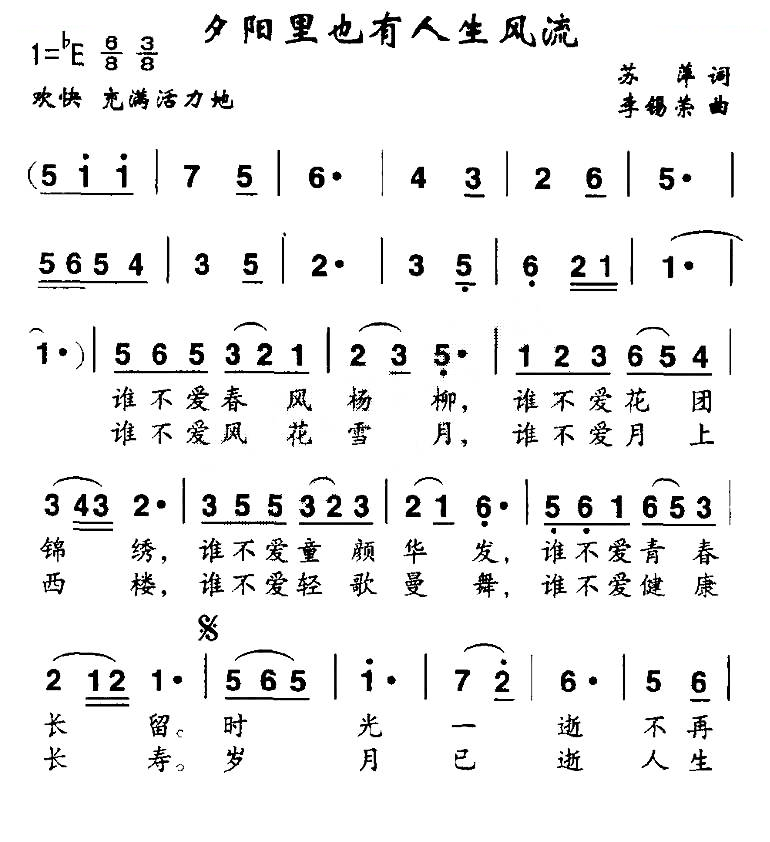 夕阳里也有人生风流
1=♭E 6/8 3/8
苏 萍 词
欢快 充满活力地
李锡荣 曲
(5 i i | 7 5 | 6· | 4 3 | 2 6 | 5· |
5 6 5 4 | 3 5 | 2· | 3 5̣ | 6̣ 2 1 | 1· |
1·) | 5 6 5 3 2 1 | 2 3 5̣· | 1 2 3 6 5 4 |
谁不爱春风杨柳，谁不爱花团
谁不爱风花雪月，谁不爱月上
3 4 3 2· | 3 5 5 3 2 3 | 2 1 6̣· | 5̣ 6̣ 1 6 5 3 |
锦绣，谁不爱童颜华发，谁不爱青春
西楼，谁不爱轻歌曼舞，谁不爱健康
𝄋
2 1 2 1· | 5 6 5 | i· | 7 2̇ | 6· | 5 6 |
长留。时光一逝不再
长寿。岁月已逝人生